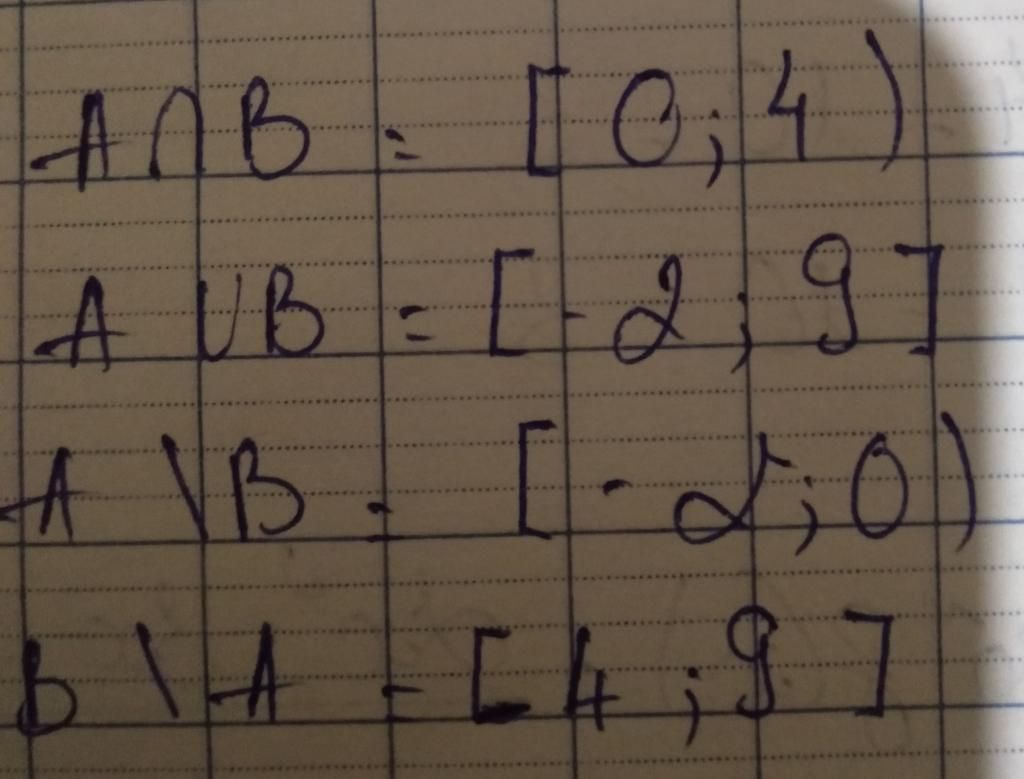 A ∩ B = [ 0 ; 4 )
A ∪ B = [ - 2 ; 9 ]
A \ B = [ - 2 ; 0 )
B \ A = [ 4 ; 9 ]